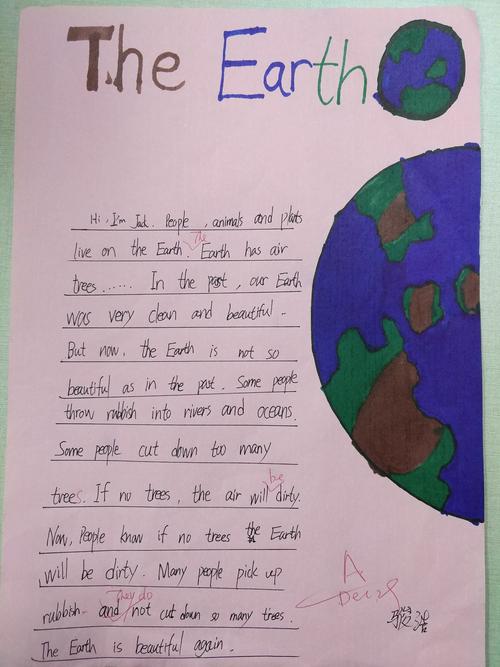 The Earth
Hi, I'm Jack. People, animals and plants
The
live on the Earth. Earth has air
trees...... In the past, our Earth
was very clean and beautiful.
But now, the Earth is not so
beautiful as in the past. Some people
throw rubbish into rivers and oceans.
Some people cut down too many
be
trees. If no trees, the air will dirty.
Now, People know if no trees the Earth
will be dirty. Many people pick up
They do
rubbish and not cut down so many trees.
The Earth is beautiful again.
A